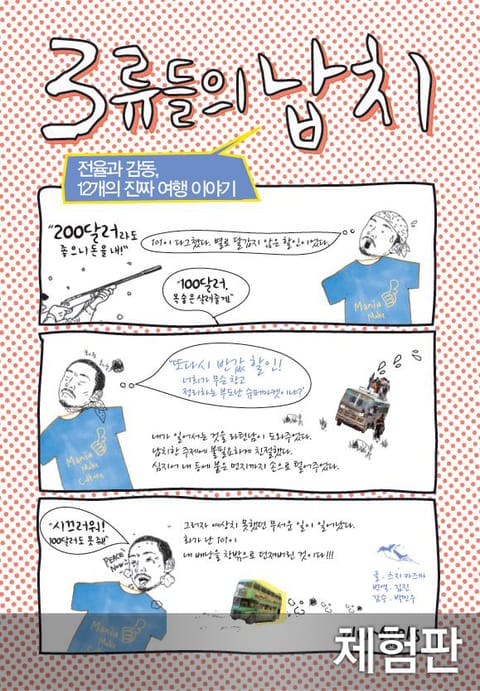 3류들의 납치
전율과 감동,
12개의 진짜 여행 이야기
"200달러라도
좋으니 돈을 내!"
101이 다그쳤다. 별로 달갑지 않은 할인이었다.
"100달러,
목숨은 살려줄게"
Mania
Make
"또다시 반값 할인!
너희가 무슨 창고
정리하는 부도난 슈퍼마켓이냐?"
Mania
Make
Culture
내가 일어서는 것을 라틴남이 도와주었다.
납치한 주제에 불필요하게 친절했다.
심지어 내 등에 붙은 먼지까지 손으로 털어주었다.
"시끄러워!
100달러도 못 줘!"
PEACE
Now!
그러자 예상치 못했던 무서운 일이 일어났다.
화가 난 101이
내 배낭을 창밖으로 던져버린 것이다!!!
Mania
Make
글 - 츠지 카즈마
번역 - 김진
감수 - 박민우
체험판